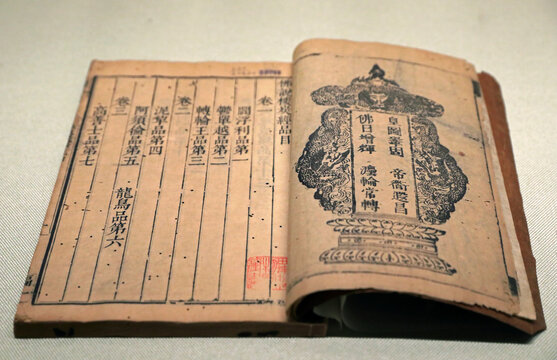 皇圖鞏固 帝衜遐昌
佛日增輝 灋輪常轉
佛說樓炭經品目
卷一
閻浮利品第一
鬱單越品第二
轉輪王品第三
卷二
泥犂品第四
阿須倫品第五 龍鳥品第六
卷三
高善士品第七